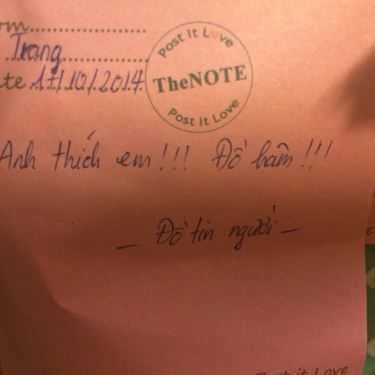 om
Trang
te 17/10/2014
Post It Love
TheNOTE
Post It Love
Anh thích em!!! Đồ hâm!!!
_ Đồ tin người _
Post it Love